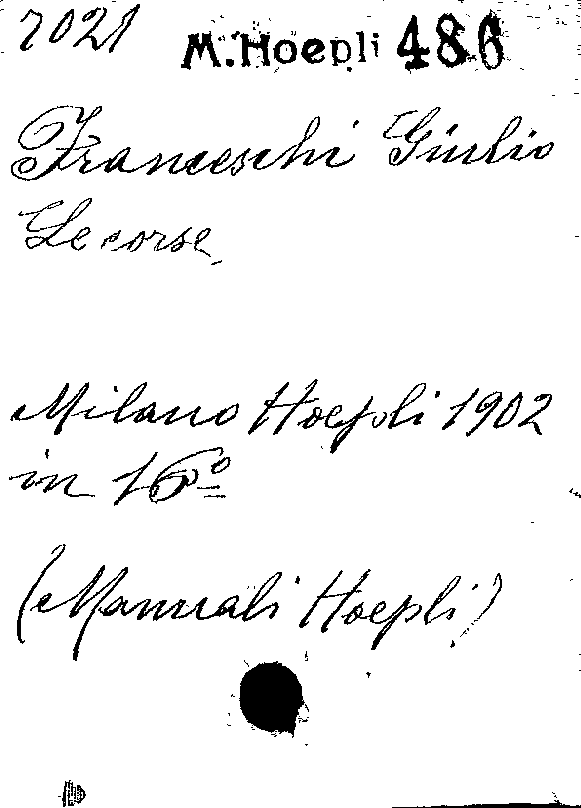 7021 M.Hoepli 486
Franceschi Giulio
Le corse
Milano Hoepli 1902
in 16º
(Manuali Hoepli)